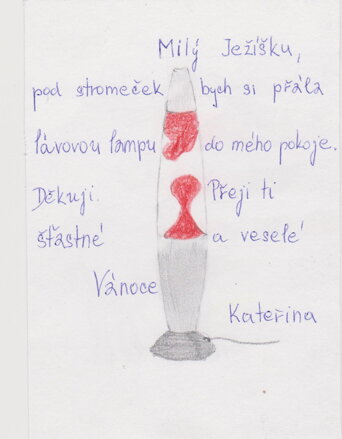 Milý Ježíšku,
pod stromeček bych si přála
lávovou lampu do mého pokoje.
Děkuji. Přeji ti
šťastné a veselé
Vánoce
Kateřina